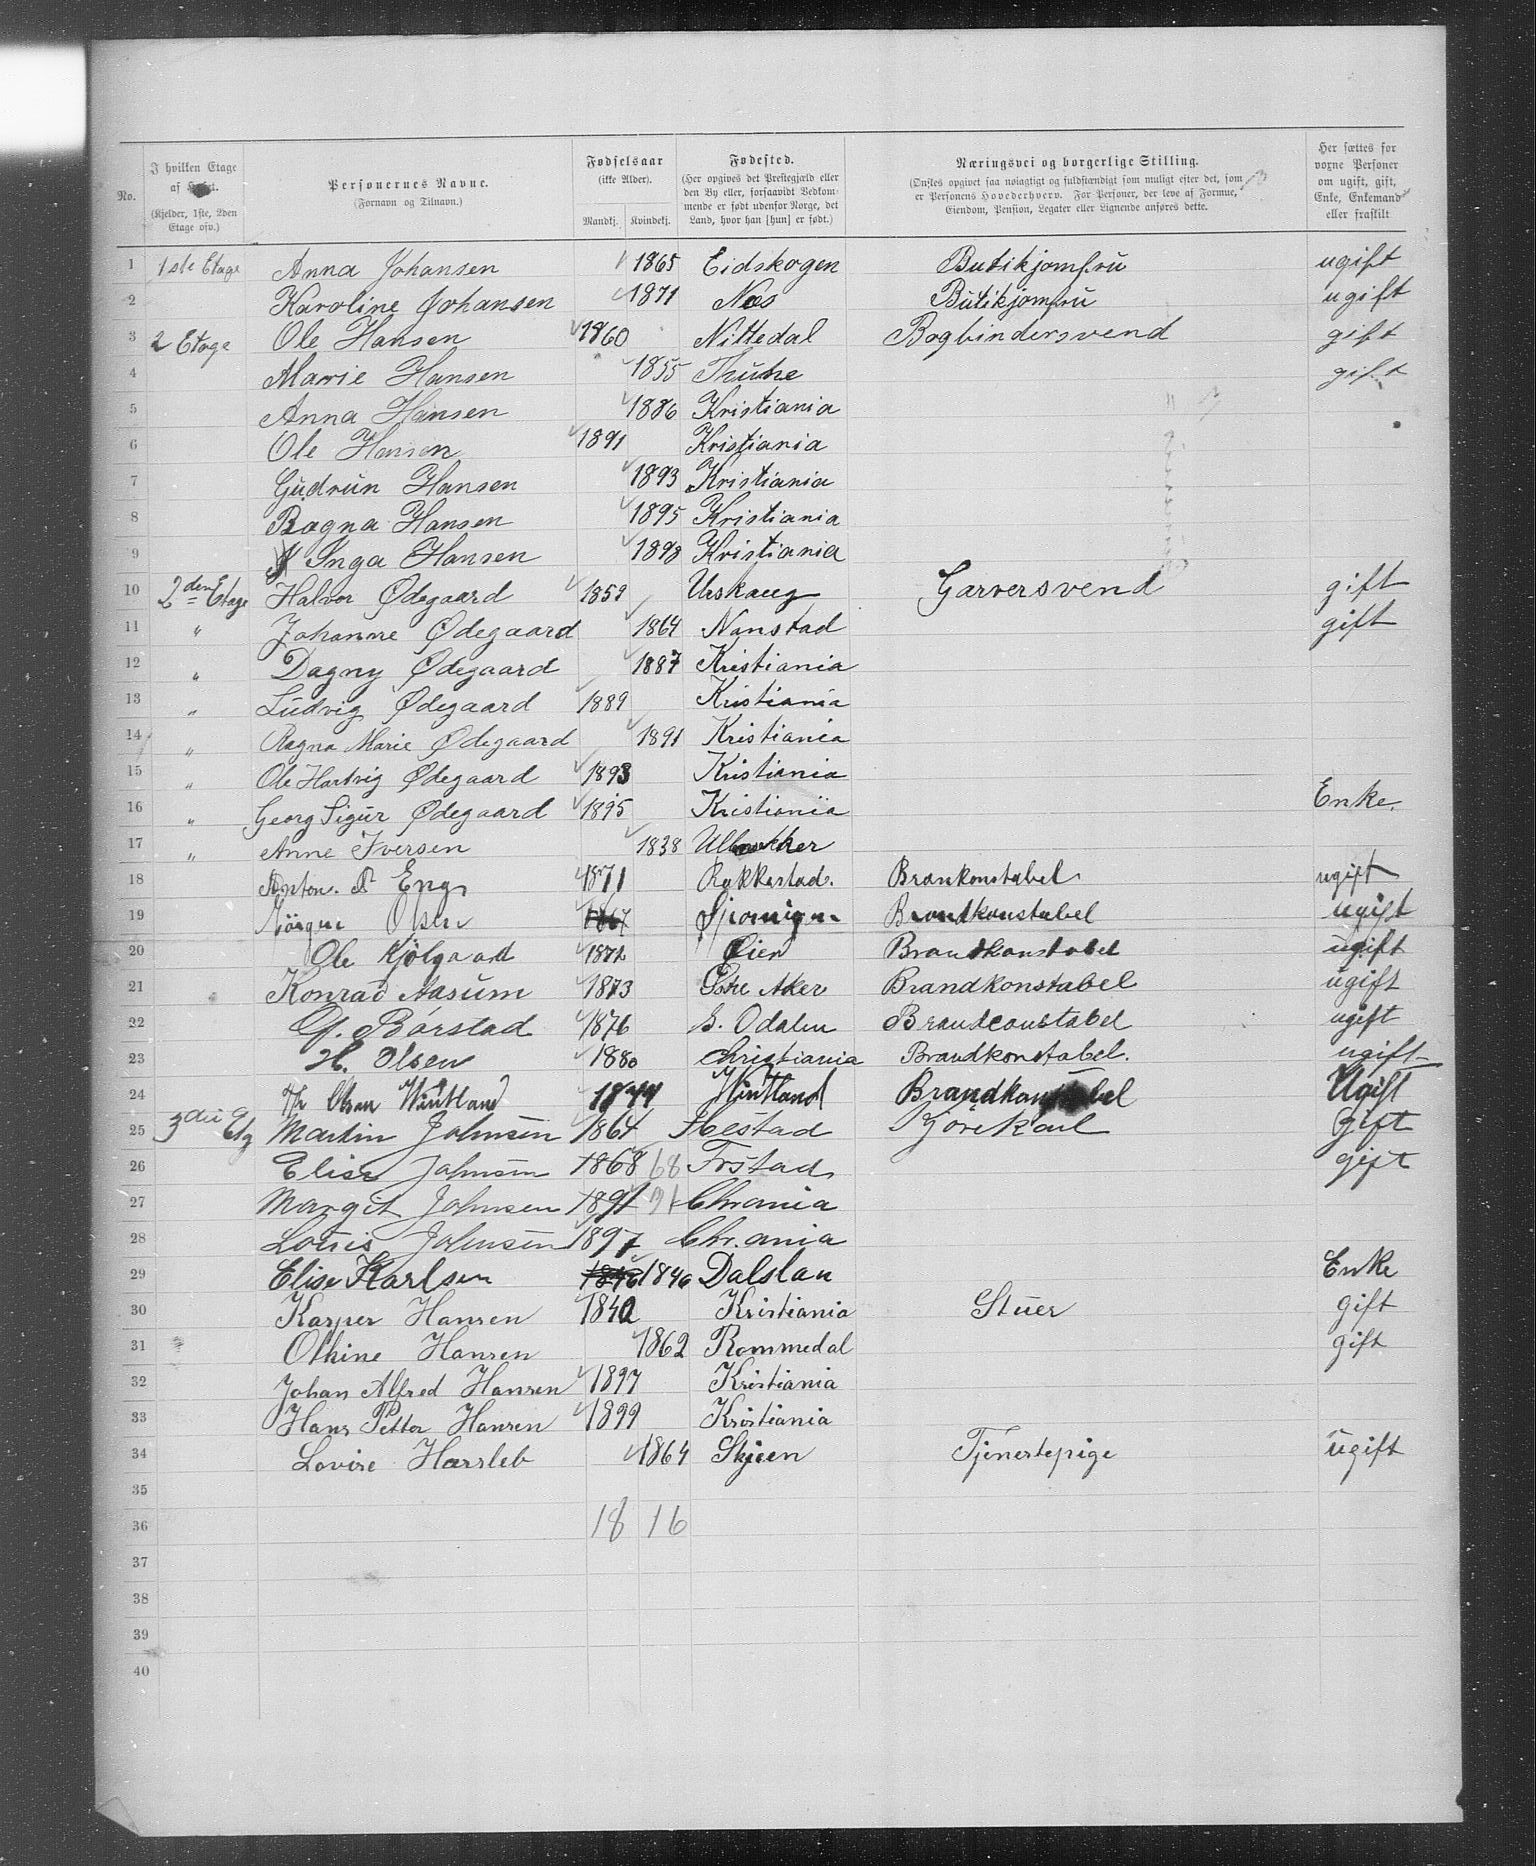 No. I hvilken Etage af Huset. (Kjelder, 1ste, 2den Etage osv.) Personernes Navne. (Fornavn og Tilnavn.) Fødselsaar (ikke Alder). Mandkj. Kvindekj. Fødested. (Her opgives det Prestegjæld eller den By eller, forsaavidt Vedkommende er født udenfor Norge, det Land, hvor han [hun] er født.) Næringsvei og borgerlige Stilling. (Ønskes opgivet saa nøiagtigt og fuldstændigt som muligt efter det, som er Personens Hovederhverv. For Personer, der leve af Formue, Eiendom, Pension, Legater eller Lignende anføres dette. Her sættes for voxne Personer om ugift, gift, Enke, Enkemand eller fraskilt
1 1ste Etage Anna Johansen 1865 Eidskogen Butikjomfru ugift
2 Karoline Johansen 1871 Nes Butikjomfru ugift
3 2 Etage Ole Hansen 1860 Nittedal Bogbindersvend gift
4 Marie Hansen 1855 gift
5 Anna Hansen 1886 Kristiania
6 Ole Hansen 1891 Kristiania
7 Gudrun Hansen 1893 Kristiania
8 Ragna Hansen 1895 Kristiania
9 Inga Hansen 1898 Kristiania
10 2den Etage Halvor Ødegaard 1859 Urskaug Garversvend gift
11 " Johanne Ødegaard 1864 Nanstad gift
12 " Dagny Ødegaard 1887 Kristiania
13 " Ludvig Ødegaard 1889 Kristiania
14 " Ragna Marie Ødegaard 1891 Kristiania
15 " Ole Hartvig Ødegaard 1893 Kristiania
16 " Georg Sigur Ødegaard 1895 Kristiania Enke.
17 " Anne Iversen 1838
18 Anton. P Eng 1871 Rakkestad. Brankonstabel. ugift
19 Jörgen Olsen 1867 Brandkonstabel ugift
20 Ole Kjölgaard 1872 Øier Brandkonstabel ugift
21 Konrad Aasum 1873 Østre Aker Brandkonstabel ugift
22 Børstad 1876 S. Odalen Brandconstabel ugift
23 H. Olsen 1880 Christiania Brandkonstabel. ugift
24 Olsen 1877 Brandkonstabel Ugift
25 3die Etg Martin Johnsen 1864 Kjørekarl Gift
26 Elise Johnsen 1868 68 gift
27 Margit Johnsen 1891 91 Chrania
28 Louis Johnsen 1897 Chr.ania
29 Elise Karlsen 1846 1846 Dalslan Enke
30 Kasper Hansen 1840 Kristiania Stuer gift
31 Othine Hansen 1862 Rommedal gift
32 Johan Alfred Hansen 1897 Kristiania
33 Hans Petter Hansen 1899 Kristiania
34 Lovise Harsleb 1864 Skjeen Tjenestepige ugift
35
36 18 16
37
38
39
40